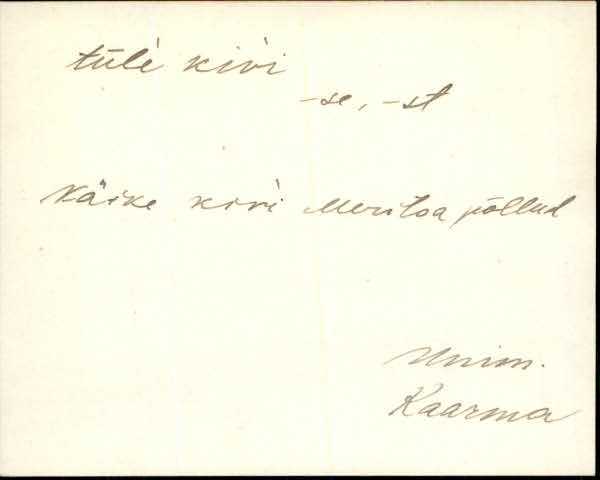 tüli kivi
-se, -st
Käike kivi Meriloa põllud
Unim.
Kaarma